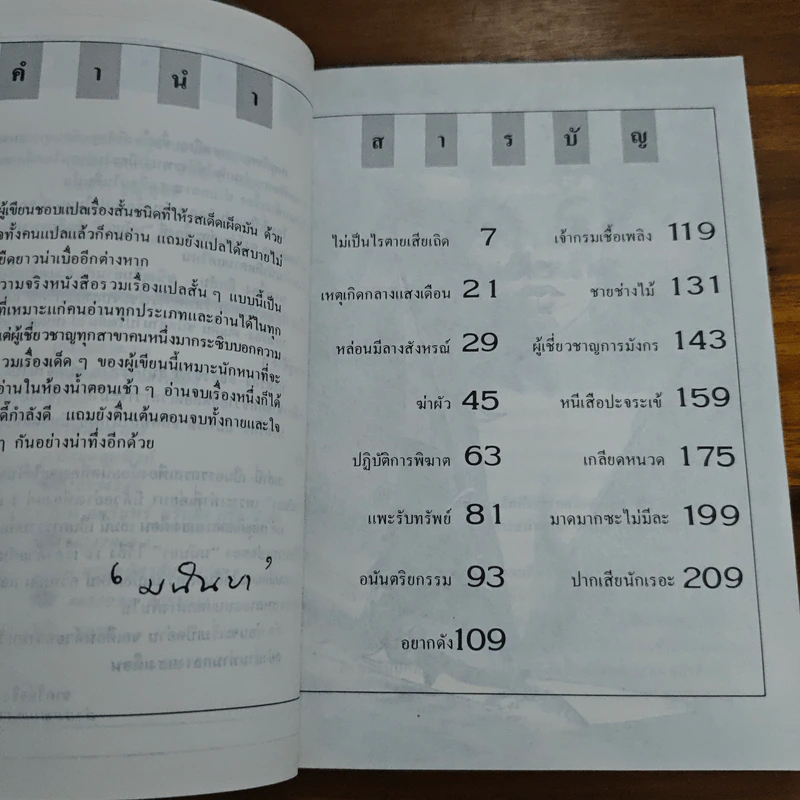 คำนำ
ผู้เขียนชอบแปลเรื่องสั้นชนิดที่ให้รสเด็ดเผ็ดมัน ด้วย
ทั้งคนแปลแล้วก็คนอ่าน แถมยังแปลได้สบายไม่
ยืดยาวน่าเบื่ออีกต่างหาก
ความจริงหนังสือรวมเรื่องแปลสั้น ๆ แบบนี้เป็น
ที่เหมาะแก่คนอ่านทุกประเภทและอ่านได้ในทุก
แต่ผู้เชี่ยวชาญทุกสาขาคนหนึ่งมากระซิบบอกความ
รวมเรื่องเด็ด ๆ ของผู้เขียนนี้เหมาะนักหนาที่จะ
อ่านในห้องน้ำตอนเช้า ๆ อ่านจบเรื่องหนึ่งก็ได้
กำลังดี แถมยังตื่นเต้นตอนจบทั้งกายและใจ
ๆ กันอย่างน่าทึ่งอีกด้วย
สารบัญ
ไม่เป็นไรตายเสียเถิด 7
เหตุเกิดกลางแสงเดือน 21
หล่อนมีลางสังหรณ์ 29
ฆ่าผัว 45
ปฏิบัติการพิฆาต 63
แพะรับทรัพย์ 81
อนันตริยกรรม 93
อยากดัง 109
เจ้ากรมเชื้อเพลิง 119
ชายช่างไม้ 131
ผู้เชี่ยวชาญการมังกร 143
หนีเสือปะจระเข้ 159
เกลียดหนวด 175
มาดมากซะไม่มีละ 199
ปากเสียนักเรอะ 209